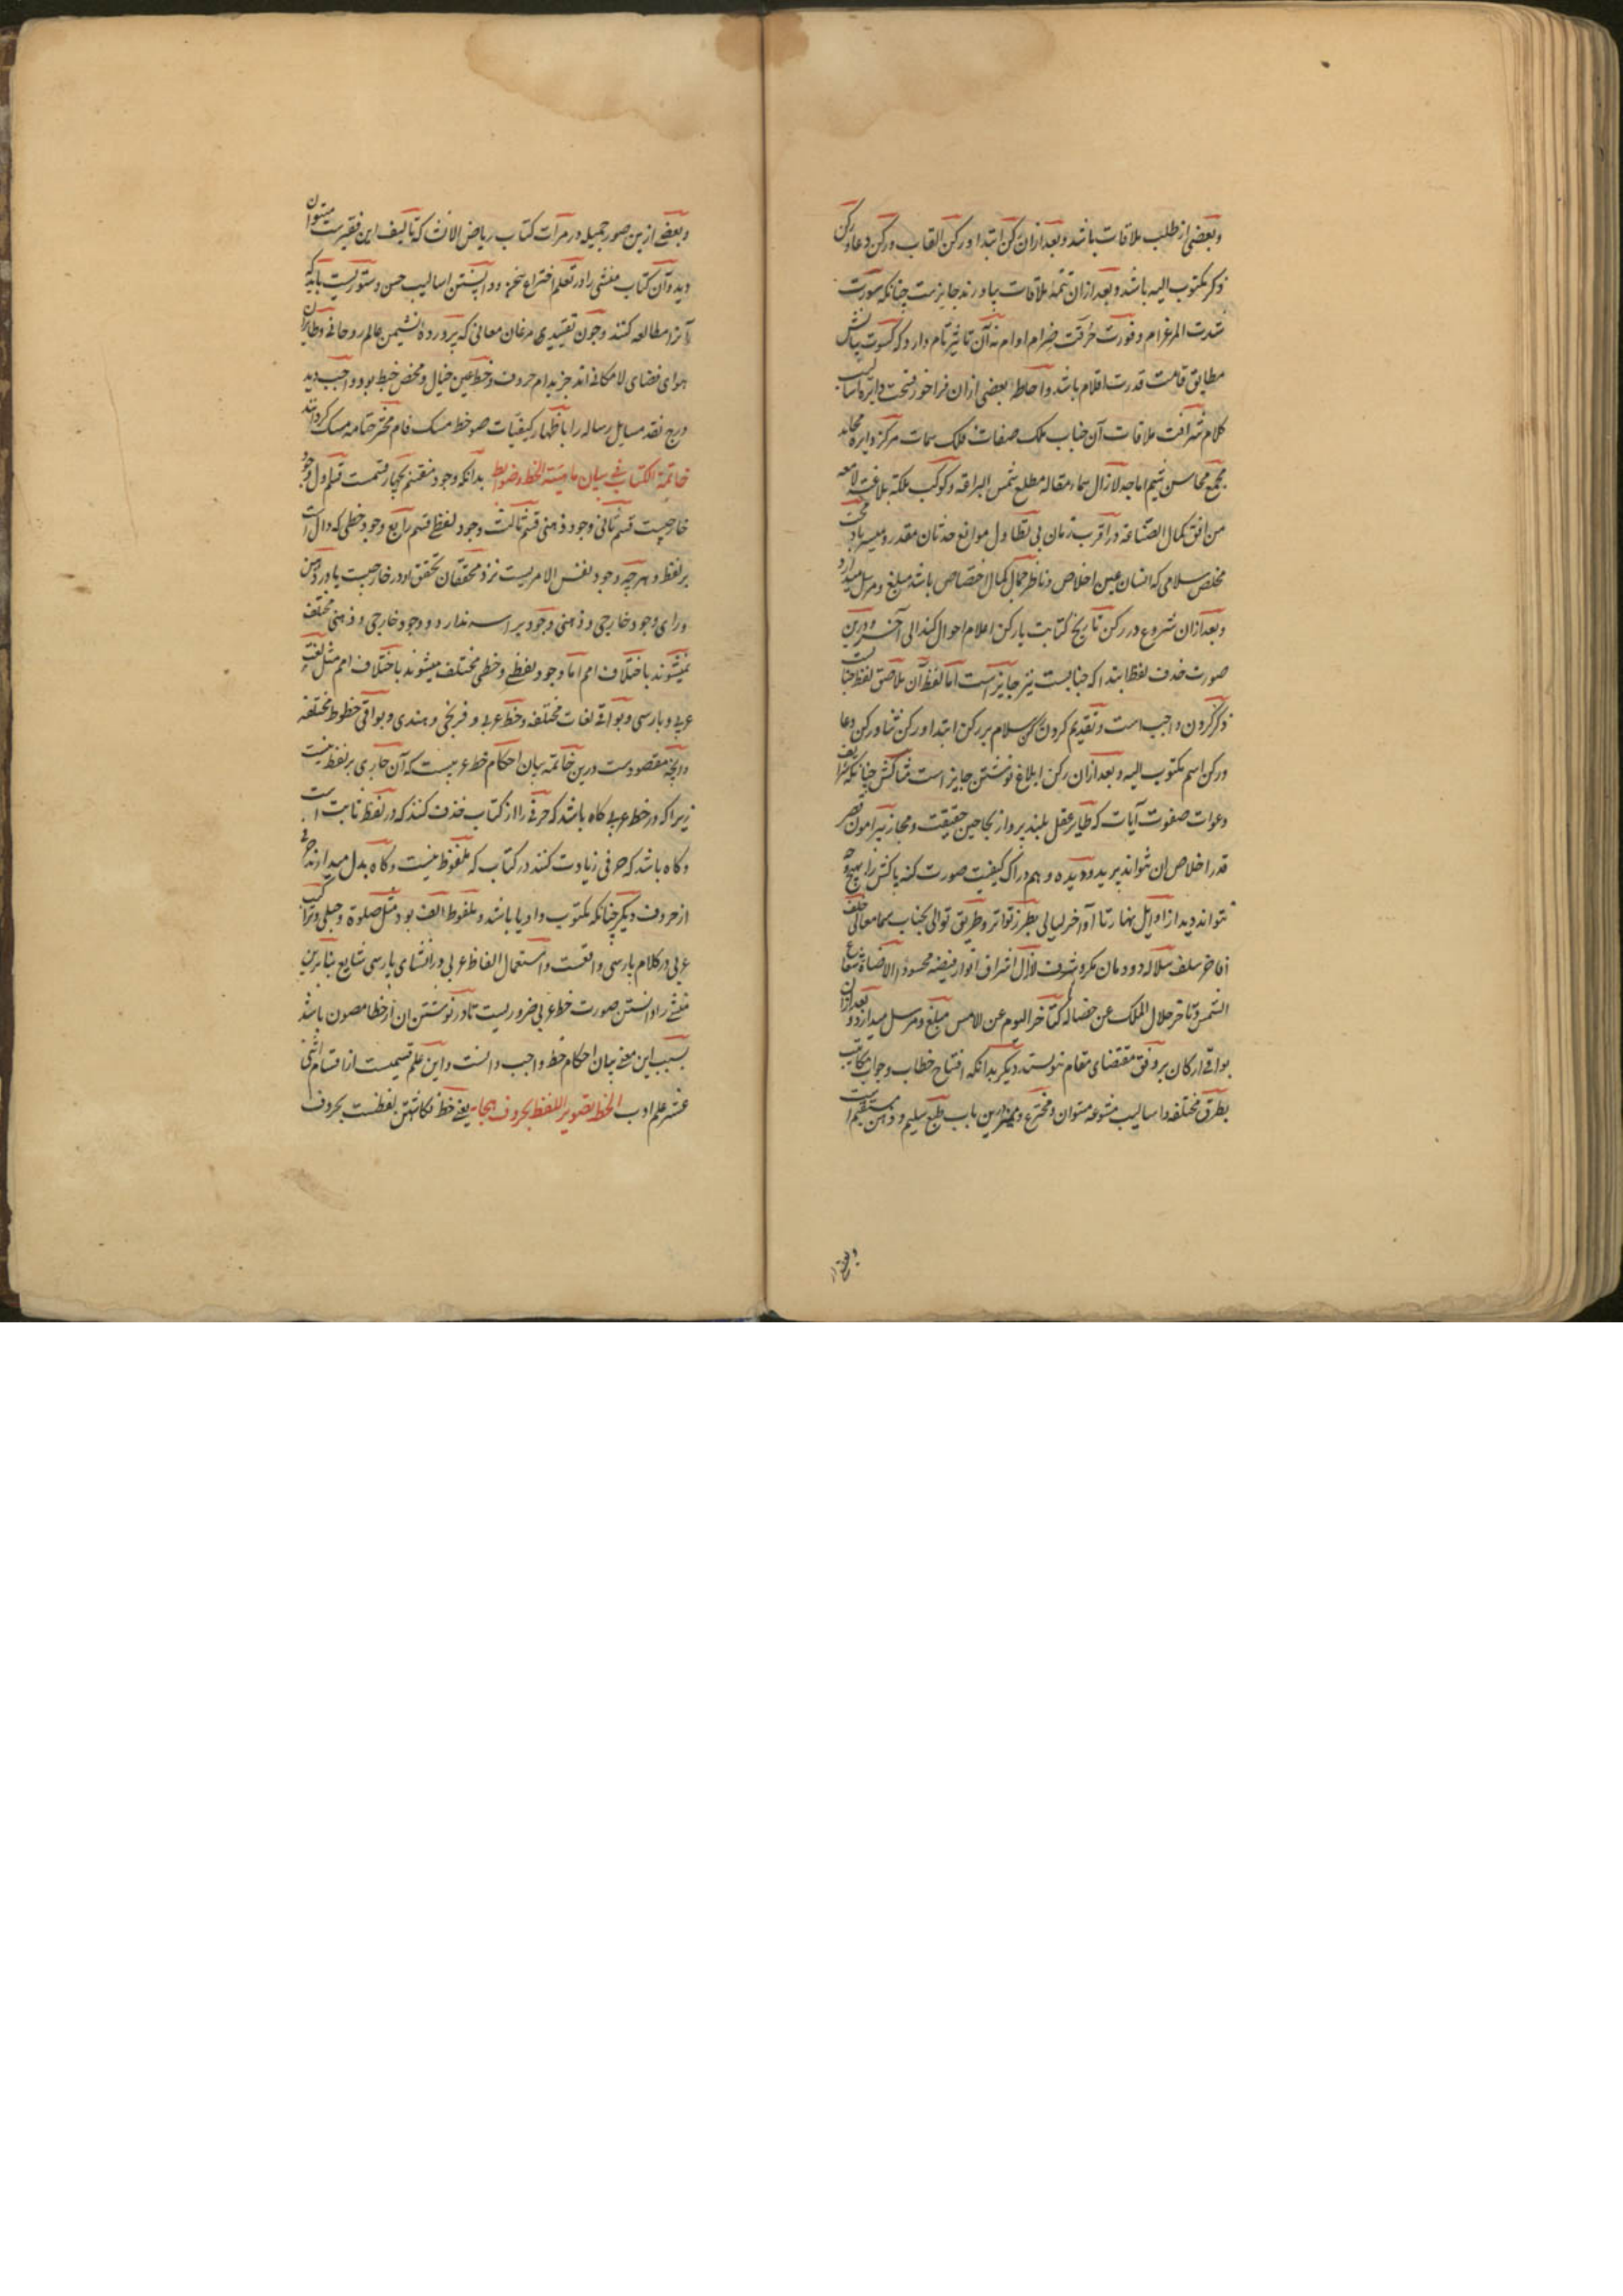 وبعضی از طلب ملاقات باشد و بعد ازان رکن ابتدا و رکن القاب و رکن دعا و رکن
ذکر مکتوب الیه باشد و بعد ازان تتمهٔ ملاقات بیاورند جایزست چنانکه سورت
شدت الم غرام و فورت حرقت ضرام اوام نه آن تاثیر تام دارد که کسوت بیانش
مطابق قامت قدرت اقلام باشد و احاطهٔ بعضی ازان فراخور فسحت دایرهٔ اسالیب
کلام شرافت ملاقات آن جناب ملک صفات فلک سمات مرکز دایره محامد
مجمع محاسن شیم اماجد لازال سماء مقاله مطلع شمس البراقه و کوکب ملکته بلاغته لامعه
من افق کمال الصناعة در اقرب زمان بی تطاول موانع حدثان مقدر و میسر باد محب
مخلص سلامی که انسان عین اخلاص و ناظر جمال کمال اختصاص باشد مبلغ و مرسل میدارد
و بعد ازان شروع در رکن تاریخ کتابت یا رکن اعلام احوال کند الی آخره و درین
صورت حذف لفظ ابتدا که جنابست نیز جایز است اما لفظ آن ملاصق لفظ جناب
ذکر کردن واجب است و تقدیم کردن رکن سلام بر رکن ابتدا و رکن ثنا و رکن دعا
و رکن اسم مکتوب الیه و بعد ازان رکن ابلاغ نوشتن جایز است مثالش چنانکه شرایف
دعوات صفوت آیات که طایر عقل بلند پرواز بجناحین حقیقت و مجاز پیرامون قصر
قدر اخلاص ان نتواند پرید و دیده وهم دراک کیفیت صورت کنه پاکش را بهیچ وجه
نتواند دید از اوایل نهار تا اواخر لیالی بطرز تواتر و طریق توالی بجناب سما معالی خلف
افاخر سلف سلاله دودمان مکرم و شرف لازال اشراف انوار فیضه محسود الاضاءة شعاع
الشمس و تاخر جلال الملک عن خصاله کتاخر الیوم عن لامس مبلغ و مرسل میدارد و بعد ازان
بواقی ارکان بر وفق مقتضای مقام نویسند دیگر بدانکه افتتاح خطاب و جواب مکاتیب
بطرق مختلفه و اسالیب متنوعه میتوان و مخترع و ممیز این باب طبع سلیم و ذهن مستقیم است
وبعضی از
وبعضی ازین صور جمیله در مرات کتاب ریاض الانشا که تالیف این فقیرست میتوان
دید و آن کتاب منشی را در تعلم اختراع سخن و دانستن اسالیب حسن دستوریست باید که
آنرا مطالعه کنند و چون تقییدی مرغان معانی که پروردهٔ نشیمن عالم روحانی و طایران
هوای فضای لامکانی اند جز بدام حروف و خط عین خیال و محض خبط بود واجب دید
درج نقد مسایل رساله را باظهار کیفیات صور خط مسک فام مختم ختامه مسک گرداند
خاتمة الکتاب فی بیان ماهیة الخط وضوابط بدانکه وجود منقسم بچهار قسمت قسم اول وجود
خارجیست قسم ثانی وجود ذهنی قسم ثالث وجود لفظی قسم رابع وجود خطی که دال است
بر لفظ و هرچه وجود نفس الامریست نزد محققان تحقق او در خارجیست یا در ذهن
ورای وجود خارجی و ذهنی وجود براسه ندارد و وجود خارجی و ذهنی مختلف
نمیشوند باختلاف امم اما وجود لفظی و خطی مختلف میشوند باختلاف امم مثل لغت
عربی و پارسی و بواقی لغات مختلفه و خط عربی و فرنجی و هندی و بواقی خطوط مختلفه
و آنچه مقصودست درین خاتمه بیان احکام خط عربیست که آن جاری بر لفظ نیست
زیراکه در خط عربی کاه باشد که حرفی را از کتاب حذف کنند که در لفظ ثابت است
و کاه باشد که حرفی زیادت کنند در کتاب که ملفوظ نیست و کاه بدل میدارند حرفی
از حروف دیکر چنانکه مکتوب واو یا یا باشد و ملفوظ الف بود مثل صلوة و حبلی و ترکیب
عربی در کلام پارسی واقعست و استعمال الفاظ عربی در انشای پارسی شایع بنا برین
منشی را دانستن صورت خط عربی ضروریست تا در نوشتن ان از خطا مصون باشد
بسبب این معنی بیان احکام خط واجب دانست و این علم قسیمیست از اقسام اثنی
عشر علم ادب الخط تصویر اللفظ بحروف هجا یعنی خط نکاشتن لفظست بحروف